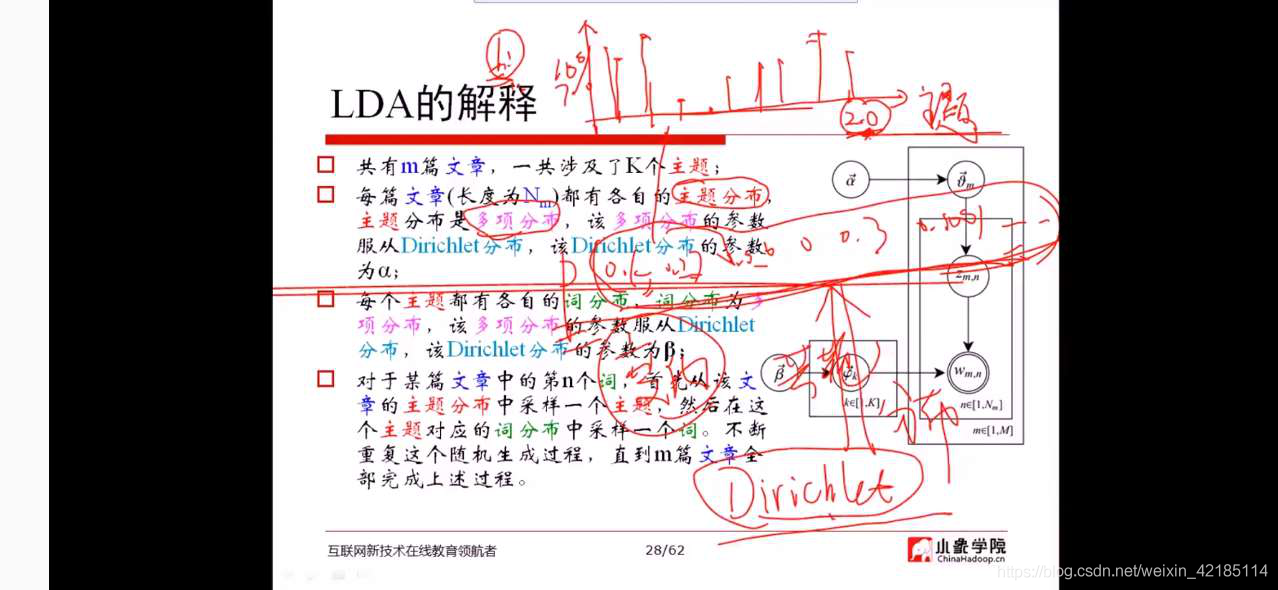 LDA的解释
20 主题
共有m篇文章，一共涉及了K个主题；
每篇文章(长度为Nm)都有各自的主题分布，
主题分布是多项分布，该多项分布的参数
服从Dirichlet分布，该Dirichlet分布的参数
为α；
每个主题都有各自的词分布，词分布为多
项分布，该多项分布的参数服从Dirichlet
分布，该Dirichlet分布的参数为β；
对于某篇文章中的第n个词，首先从该文
章的主题分布中采样一个主题，然后在这
个主题对应的词分布中采样一个词。不断
重复这个随机生成过程，直到m篇文章全
部完成上述过程。
α ϑm
0 0.3
zm,n
β φk wm,n
k∈[1,K] n∈[1,Nm]
m∈[1,M]
Dirichlet
互联网新技术在线教育领航者 28/62 小象学院
ChinaHadoop.cn
https://blog.csdn.net/weixin_42185114